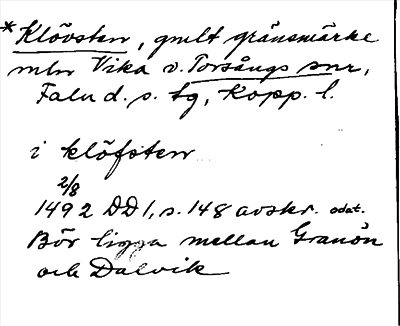 *Klövsten, gmlt gränsmärke
mln Vika o. Torsångs snr,
Falu d. s. tg, Kopp. l.
i klöfsten
2/8
1492 DD 1, s. 148 avskr. odat.
Bör ligga mellan Granön
och Dalvik